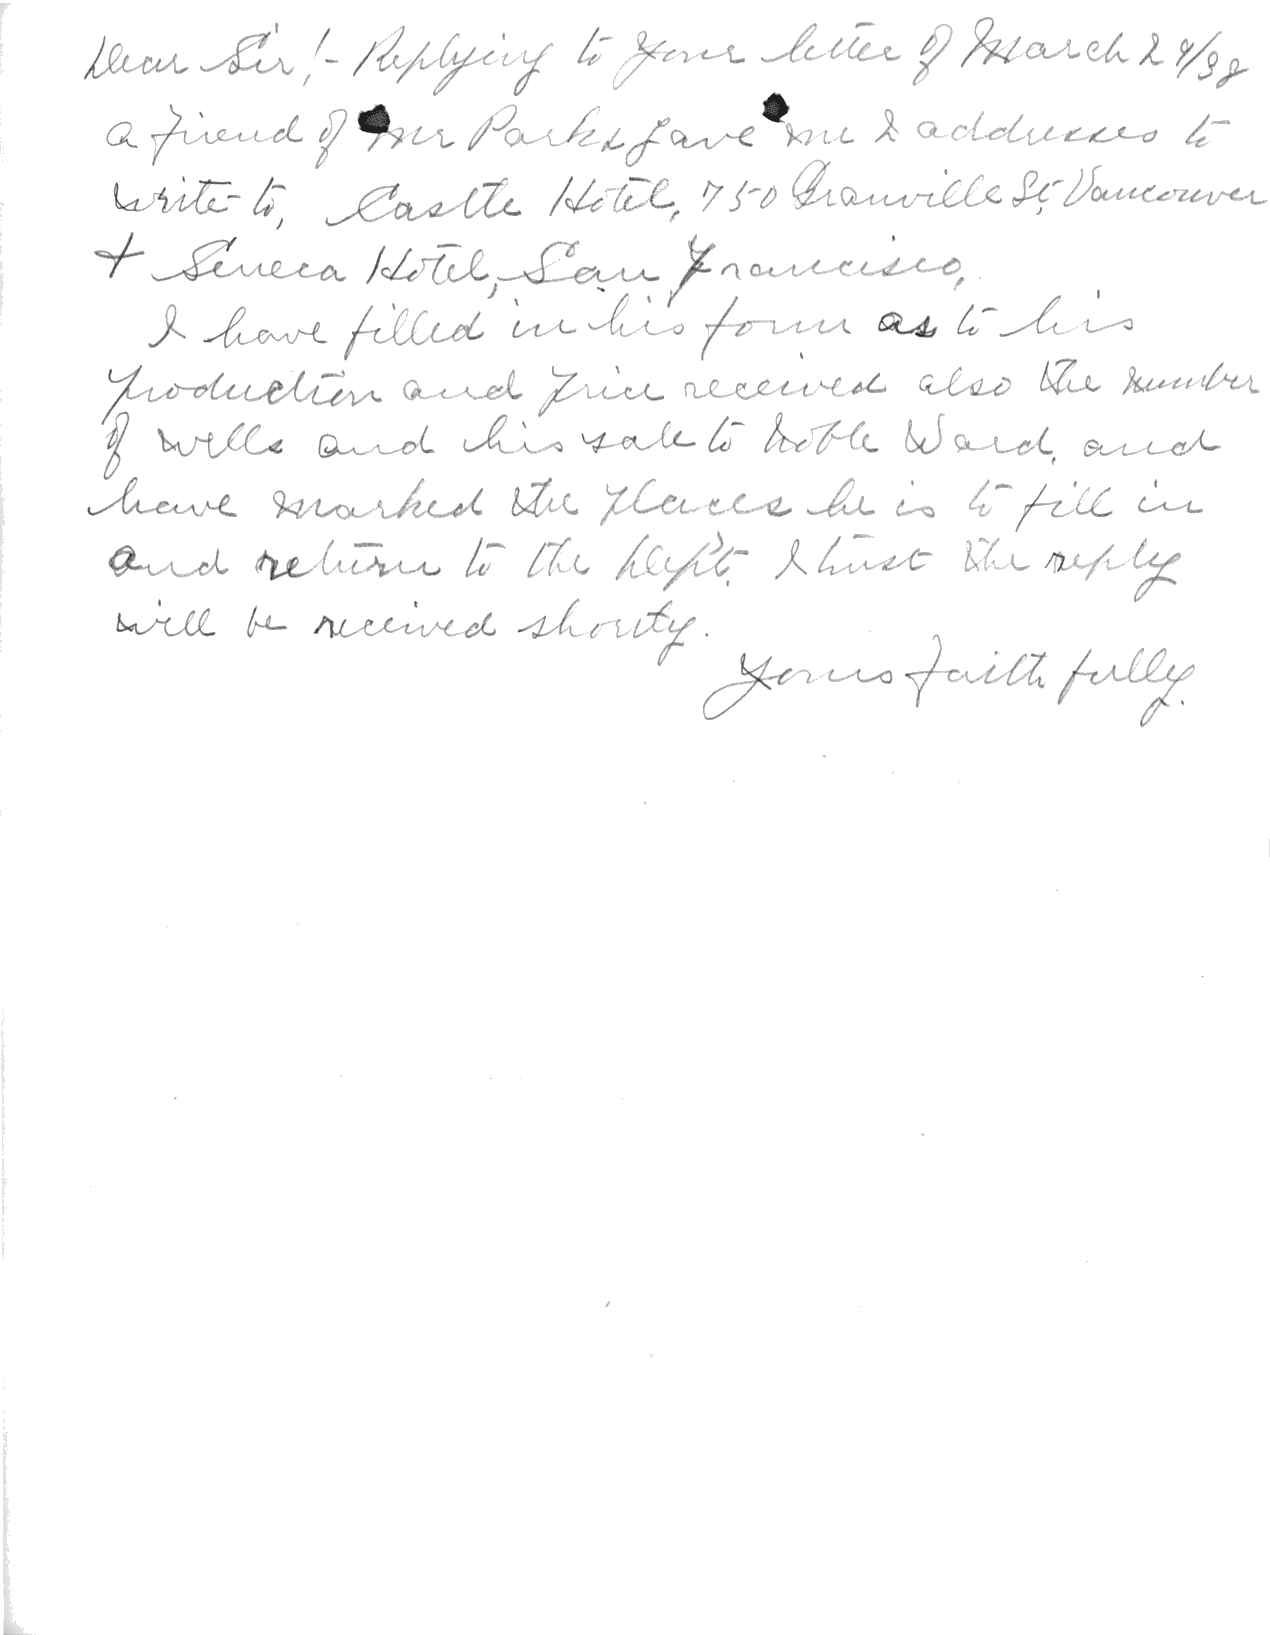 Dear Sir!- Replying to your letter of March 29/38
a friend of Mr Parks gave me 2 addresses to
write to, Castle Hotel, 750 Granville St, Vancouver
+ Seneca Hotel, San Francisco,
I have filled in his form as to his
production and price received also the number
of wells and his sale to Noble Ward, and
have marked the places he is to fill in
and return to the Dep't. I trust the reply
will be received shortly.
Yours faithfully.